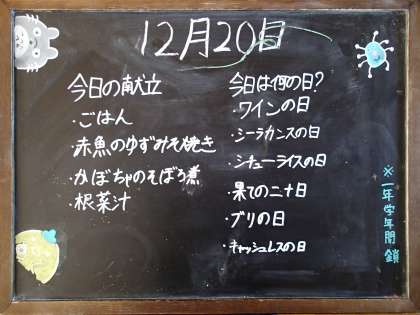 12月20日
今日の献立
・ごはん
・赤魚のゆずみそ焼き
・かぼちゃのそぼろ煮
・根菜汁
今日は何の日?
・ワインの日
・シーラカンスの日
・シチューライスの日
・果ての二十日
・ブリの日
・キャッシュレスの日
※一年学年閉鎖